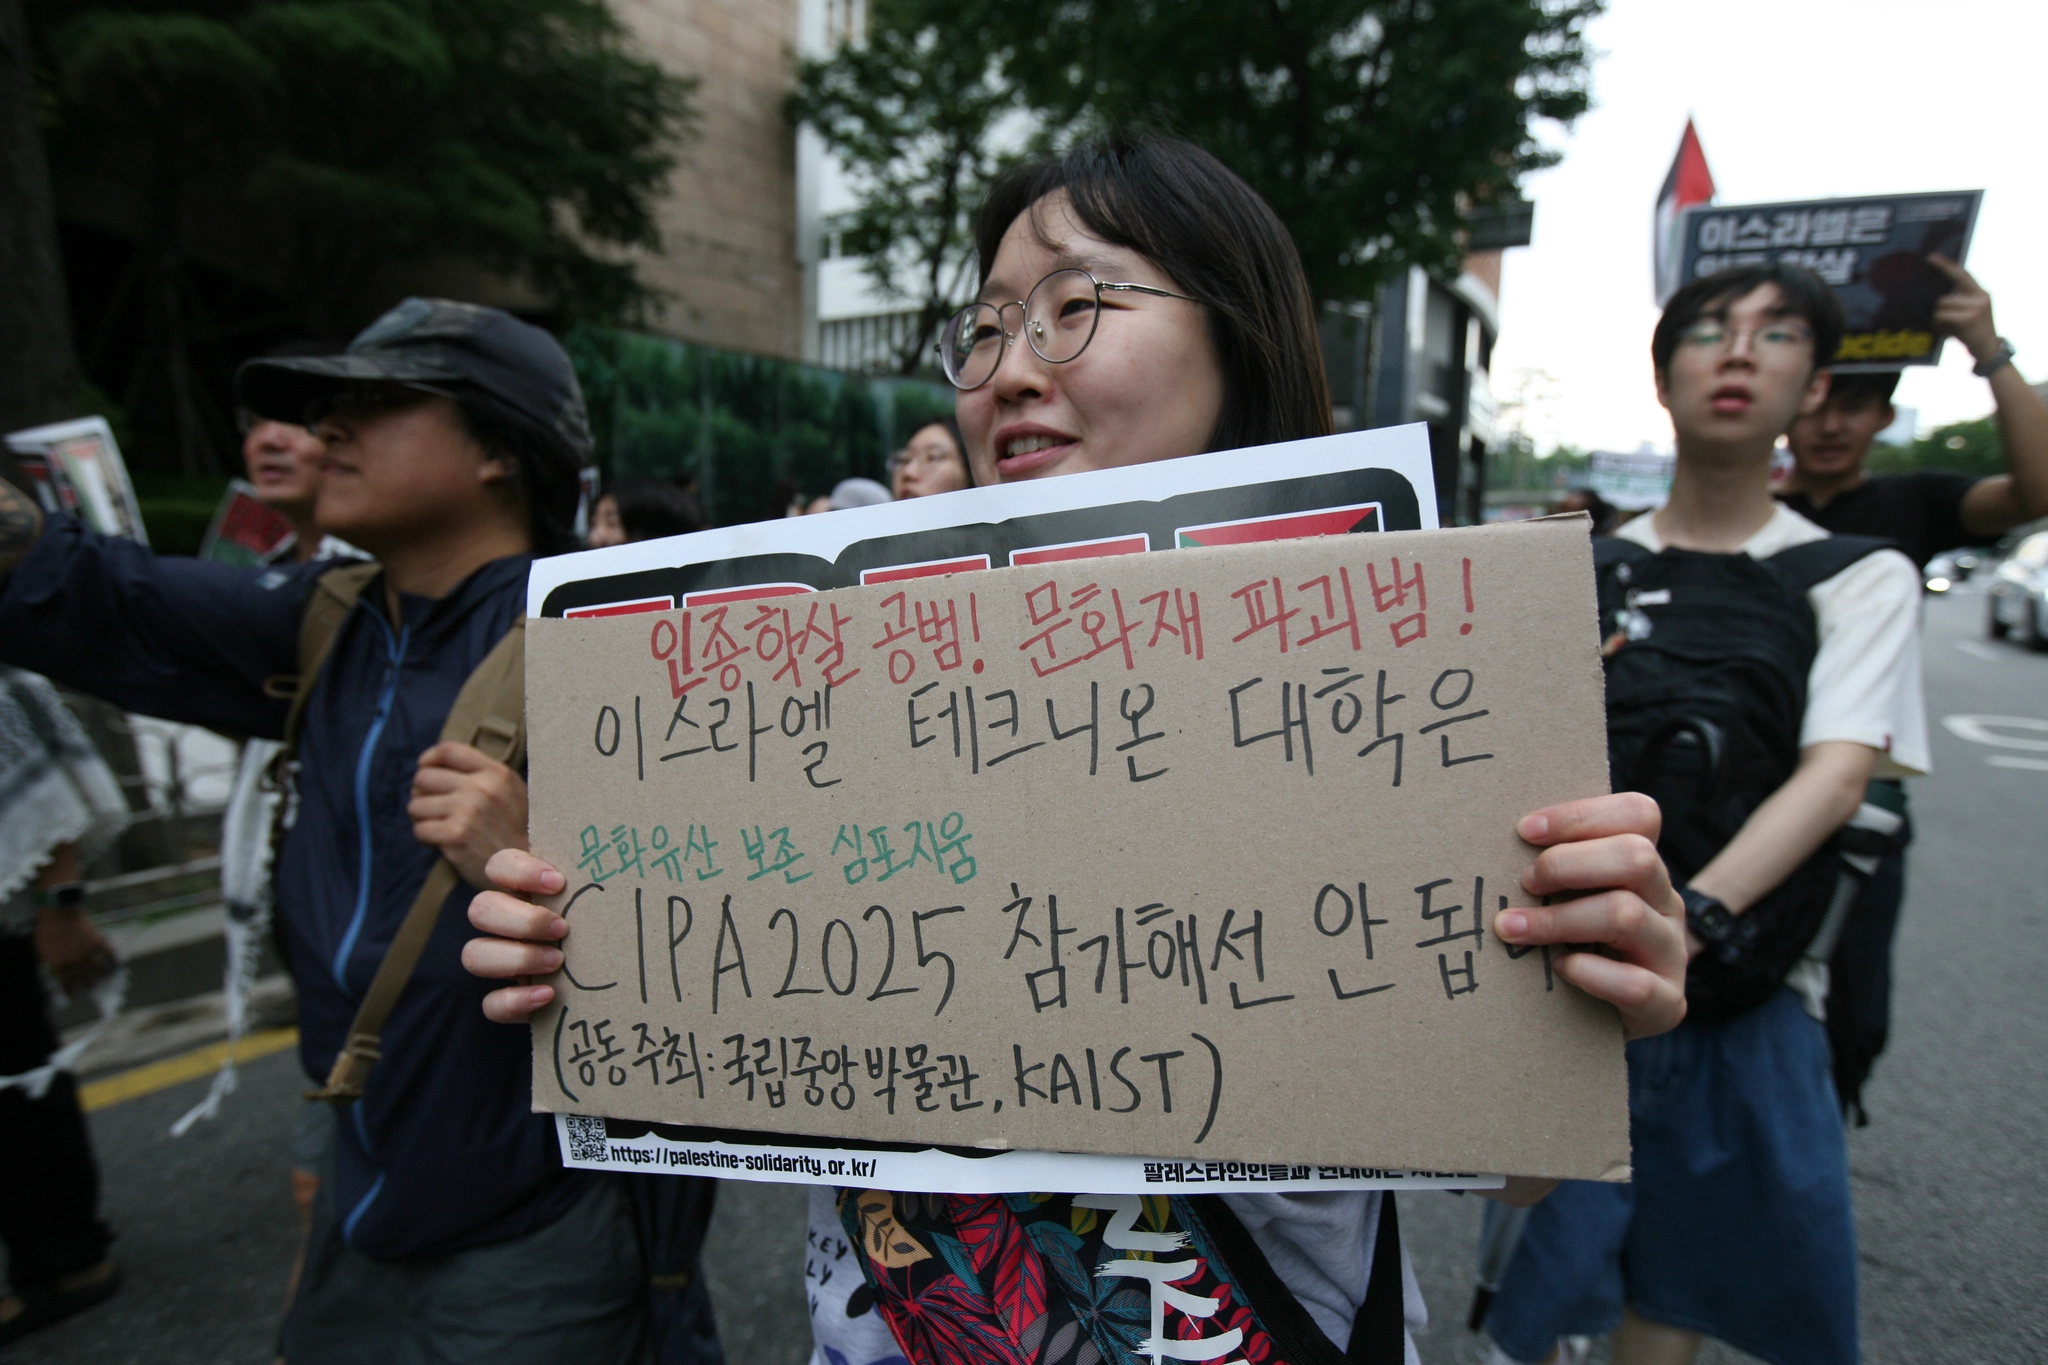 이스라엘은
인종학살 공범! 문화재 파괴범!
이스라엘 테크니온 대학은
문화유산 보존 심포지움
CIPA2025 참가해선 안 됩니
(공동주최:국립중앙박물관, KAIST)
https://palestine-solidarity.or.kr/
팔레스타인인들과 연대하는